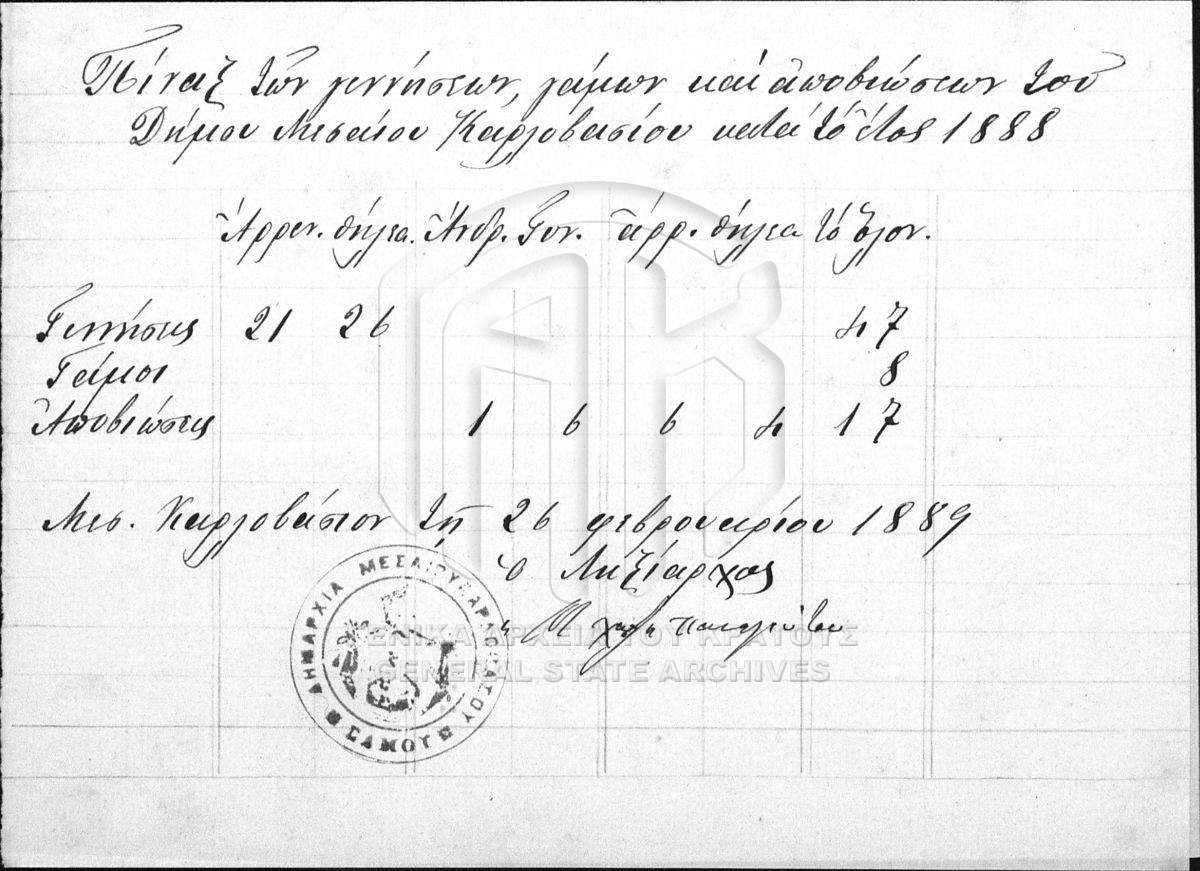 Πίναξ τῶν γεννήσεων, γάμων καὶ ἀποβιώσεων τοῦ
Δήμου Μεσαίου Καρλοβασίου κατὰ τὸ ἔτος 1888
Ἄρρεν. θήλεα. Ἄνδρ. Γυν. ἄρρ. θήλεα τὸ ὅλον.
Γεννήσεις 21 26 47
Γάμοι 8
Ἀποβιώσεις 1 6 6 4 17
Μεσ. Καρλοβάσιον τῇ 26 φεβρουαρίου 1889
ὁ Ληξίαρχος
ΔΗΜΑΡΧΙΑ ΜΕΣΑΙΟΥ ΚΑΡΛΟΒΑΣΙΟΥ
ΣΑΜΟΥ
ΓΕΝΙΚΑ ΑΡΧΕΙΑ ΤΟΥ ΚΡΑΤΟΥΣ
GENERAL STATE ARCHIVES